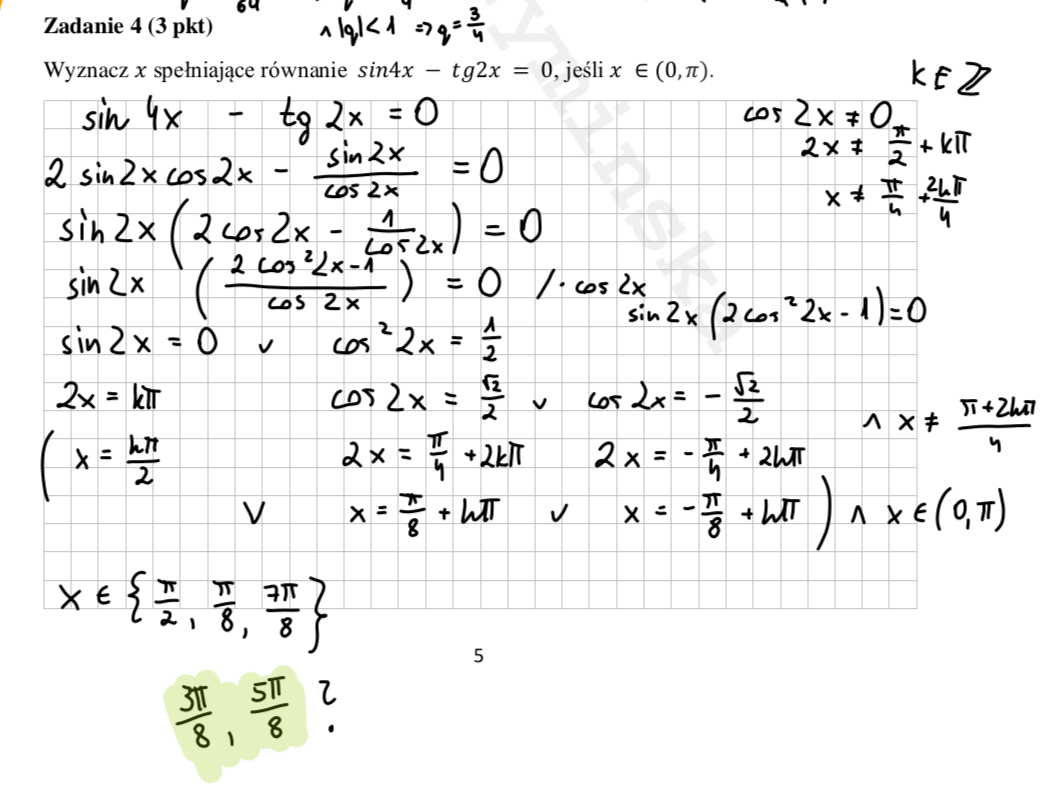 64
Zadanie 4 (3 pkt) ∧ |q|<1 => q=3/4
Wyznacz x spełniające równanie sin4x − tg2x = 0, jeśli x ∈ (0, π).
k ∈ ℤ
sin 4x - tg 2x = 0
cos 2x ≠ 0
2 sin2x cos2x - sin2x/cos2x = 0
2x ≠ π/2 + kπ
sin2x (2cos2x - 1/cos2x) = 0
x ≠ π/4 + 2kπ/4
sin2x ((2cos²2x-1)/cos 2x) = 0 /· cos 2x
sin2x (2cos²2x-1)=0
sin2x = 0 ∨ cos²2x = 1/2
2x = kπ cos2x = √2/2 ∨ cos2x = -√2/2
∧ x ≠ (π+2kπ)/4
( x = kπ/2 2x = π/4 + 2kπ 2x = -π/4 + 2kπ
∨ x = π/8 + kπ ∨ x = -π/8 + kπ ) ∧ x ∈ (0, π)
x ∈ {π/2, π/8, 7π/8}
5
3π/8, 5π/8 ?